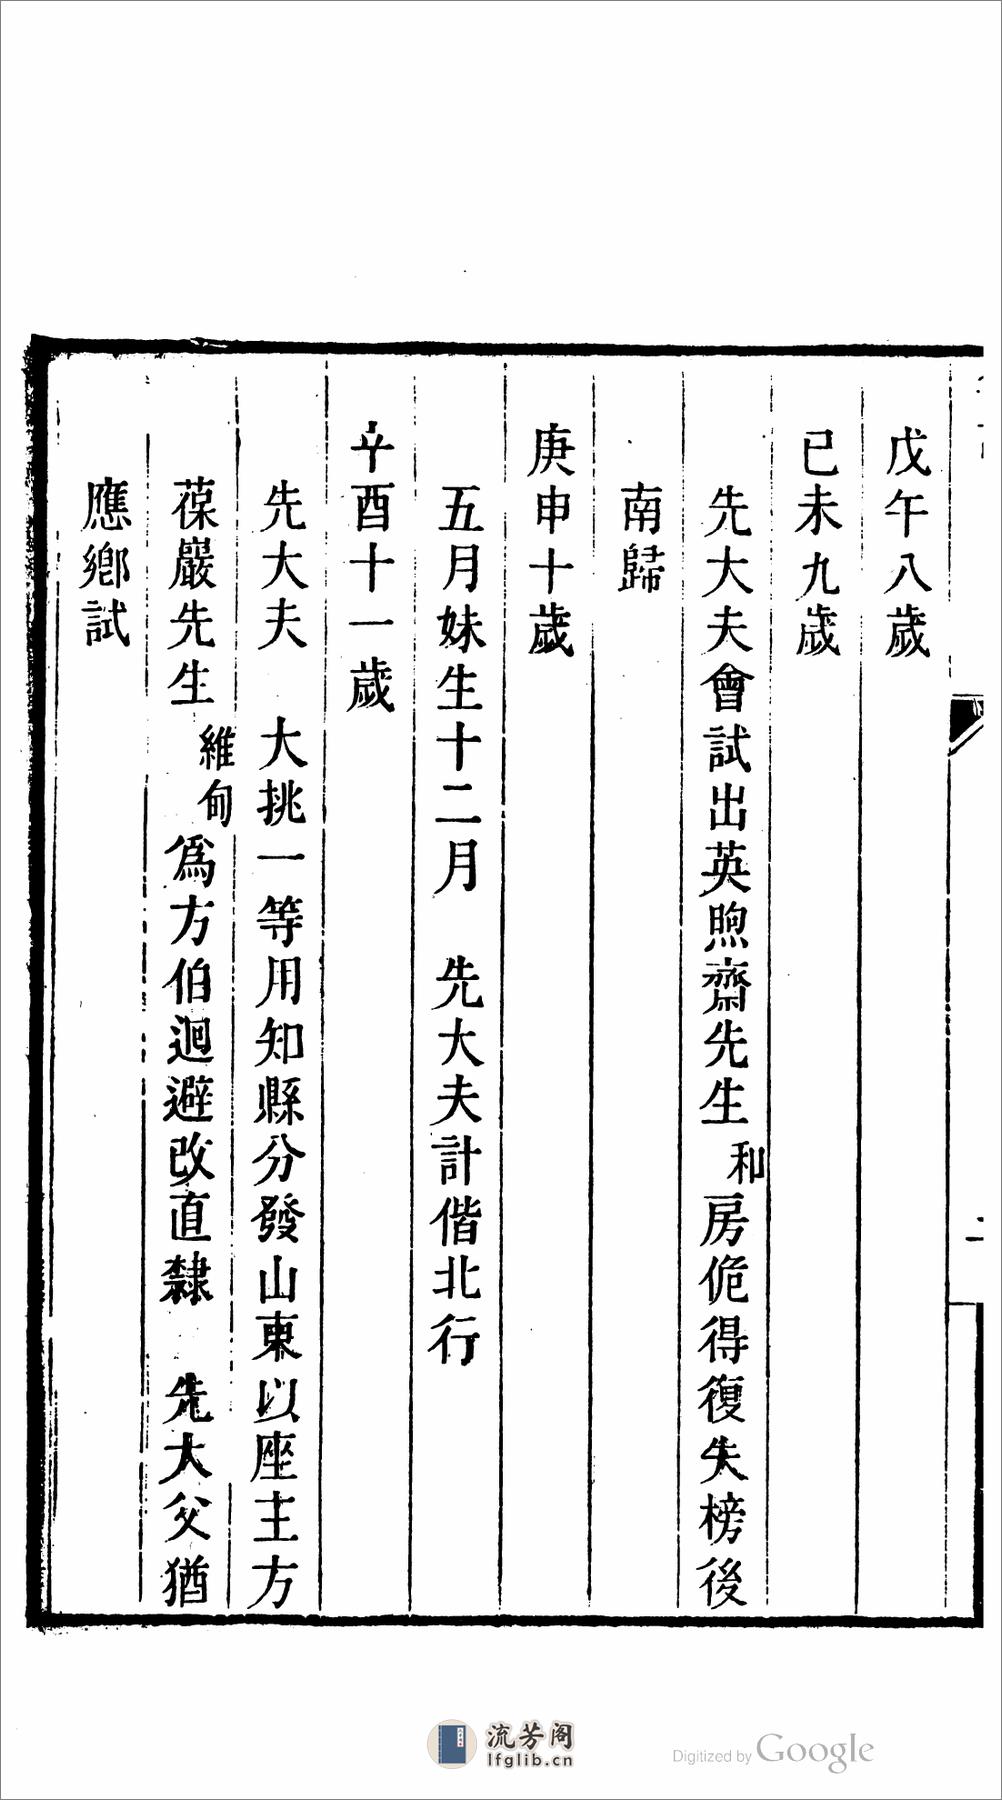 戊午八歲
已未九歲
先大夫會試出英煦齋先生和房佹得復失榜後
南歸
庚申十歲
五月妹生十二月　先大夫計偕北行
辛酉十一歲
先大夫　大挑一等用知縣分發山東以座主方
葆巖先生維甸爲方伯迴避改直隸　先大父猶
應鄉試
二
流芳阁
lfglib.cn
Digitized by Google